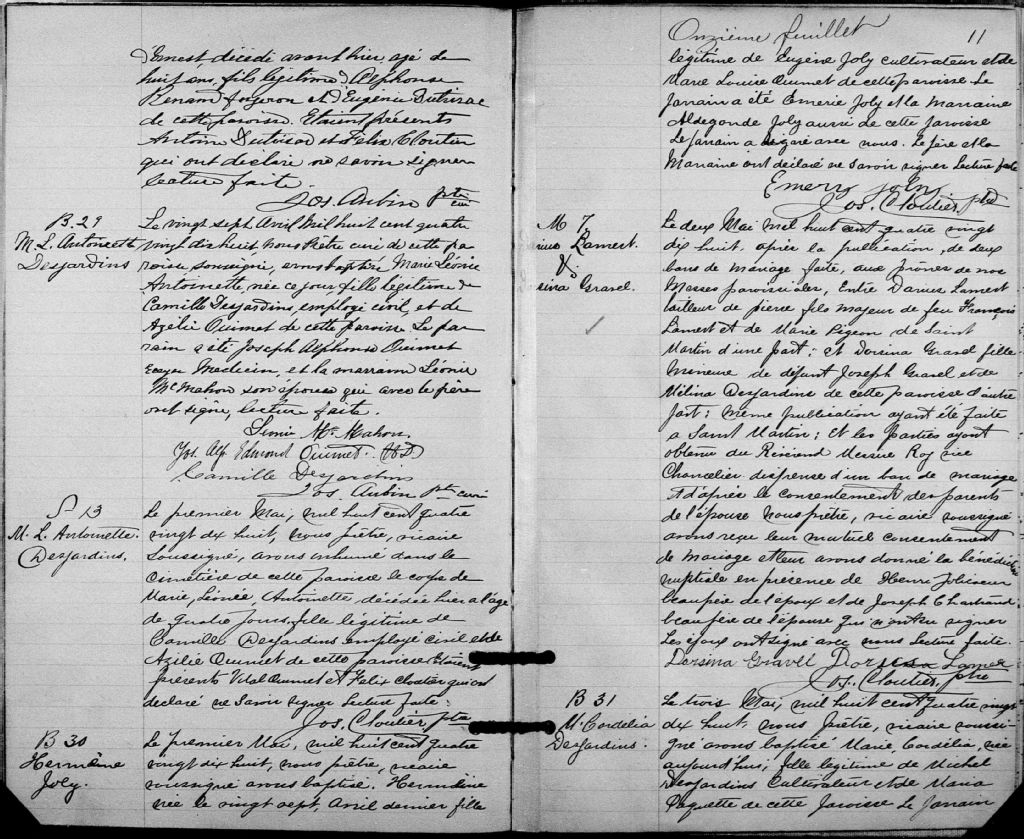 d'Ernest décédé avant hier, agé de
huit ans, fils légitime d'Alphonse
Renaud forgeron et d'Eugénie Dutrisac
de cette paroisse. Etaient présents
Antoine Dutrisac et Félix Cloutier
qui ont déclaré ne savoir signer
Lecture faite.
Jos. Aubin ptre curé
B. 29
M. L. Antoinette
Desjardins
Le vingt sept Avril mil huit cent quatre
vingt dix huit, Nous Prêtre curé de cette pa
roisse soussigné, avons baptisé Marie Léonie
Antoinette, née ce jour, fille légitime de
Camille Desjardins, employé civil, et de
Azélie Ouimet de cette paroisse. Le par
rain a été Joseph Alphonse Ouimet
Ecuyer Medecin, et la marraine Léonie
McMahon son épouse qui avec le père
ont signé, lecture faite.
Léonie McMahon.
Jos. Alp. Edmond Ouimet. M.D.
Camille Desjardins
Jos. Aubin Ptre curé
S 13
M. L. Antoinette.
Desjardins.
Le premier Mai, mil huit cent quatre
vingt dix huit, nous prêtre, vicaire
soussigné, avons inhumé dans le
Cimetière de cette paroisse le corps de
Marie, Léonie, Antoinette, décédée hier a l'age
de quatre jours, fille légitime de
Camille Desjardins employé civil et de
Azilie Ouimet de cette paroisse Etaient
présents Vital Ouimet et Felix Cloutier qui ont
declaré ne savoir signer Lecture faite.
Jos. Cloutier, ptre
B 30
Hermiène
Joly.
Le premier Mai, mil huit cent quatre
vingt dix huit, nous prêtre, vicaire
soussigné avons baptisé. Hermiène
née le vingt sept, Avril dernier fille
Onzième feuillet 11
légitime de Eugène Joly Cultivateur et de
Marie Louise Ouimet de cette paroisse Le
Parrain a été Emerie Joly et la Marraine
Aldegonde Joly aussi de cette paroisse
Le Parrain a signé avec nous. Le père et la
Marraine ont déclaré ne savoir signer Lecture faite
Emery Joly
Jos. Cloutier, ptre
M 7.
Lamert.
&
Gravel.
Le deux Mai mil huit cent quatre vingt
dix huit, après la publication, de deux
bans de mariage faite, aux prônes de nos
Messes paroissiales, Entre Darius Lamert
tailleur de pierre fils majeur de feu François
Lamert et de Marie Pigeon de Saint
Martin d'une part; et Dorsina Gravel fille
Mineure de défunt Joseph Gravel et de
Mélina Desjardins de cette paroisse d'autre
part; même publication ayant été faite
a Saint Martin; Et les Parties ayant
obtenu du Révérend Messire Roy vice
Chancelier dispense d'un ban de mariage
et d'après le consentement des parents
de l'épouse Nous prêtre, vicaire soussigné
avons reçu leur mutuel consentement
de Mariage et leur avons donné la bénédiction
nuptiale en présence de Henri Jolicoeur
beaupère de l'époux et de Joseph Chartrand
beaupère de l'épouse qui n'ont su signer
Les époux ont signé avec nous Lecture faite
Dorsina Gravel
Jos. Cloutier, ptre
B 31
M. Cordélia
Desjardins.
Le trois Mai, mil huit cent quatre vingt
dix huit, nous Prêtre, vicaire soussi-
gné avons baptisé Marie, Cordélia, née
aujourd'hui; fille légitime de Michel
Desjardins Cultivateur et de Maria
Paquette de cette Paroisse Le Parrain